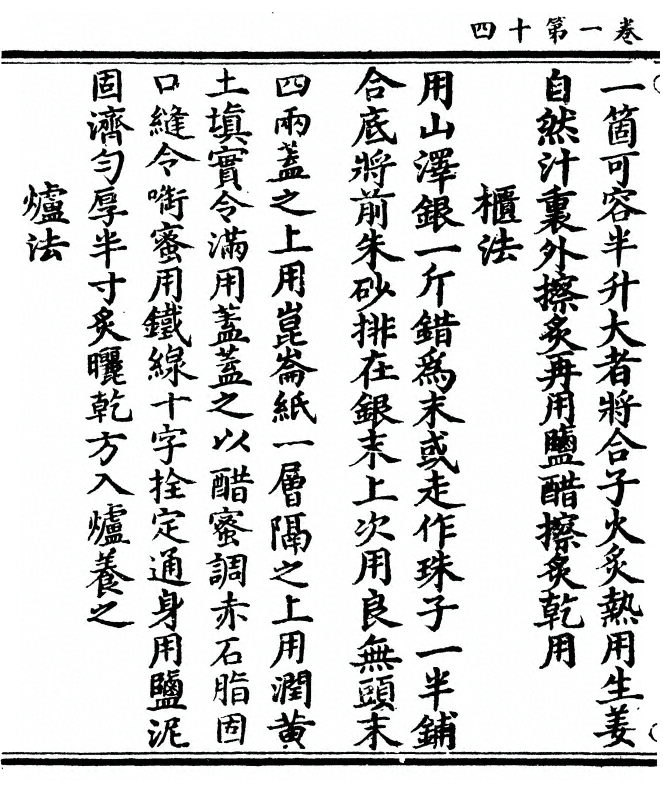 卷一第十四
一箇可容半升大者將合子火炙熱用生姜
自然汁裏外擦炙再用鹽醋擦炙乾用
櫃法
用山澤銀一斤錯爲末或走作珠子一半鋪
合底將前朱砂排在銀末上次用良無頭末
四兩蓋之上用崑崙紙一層隔之上用潤黃
土填實令滿用蓋蓋之以醋蜜調赤石脂固
口縫令啣蜜用鐵線十字拴定通身用鹽泥
固濟勻厚半寸炙曬乾方入爐養之
爐法